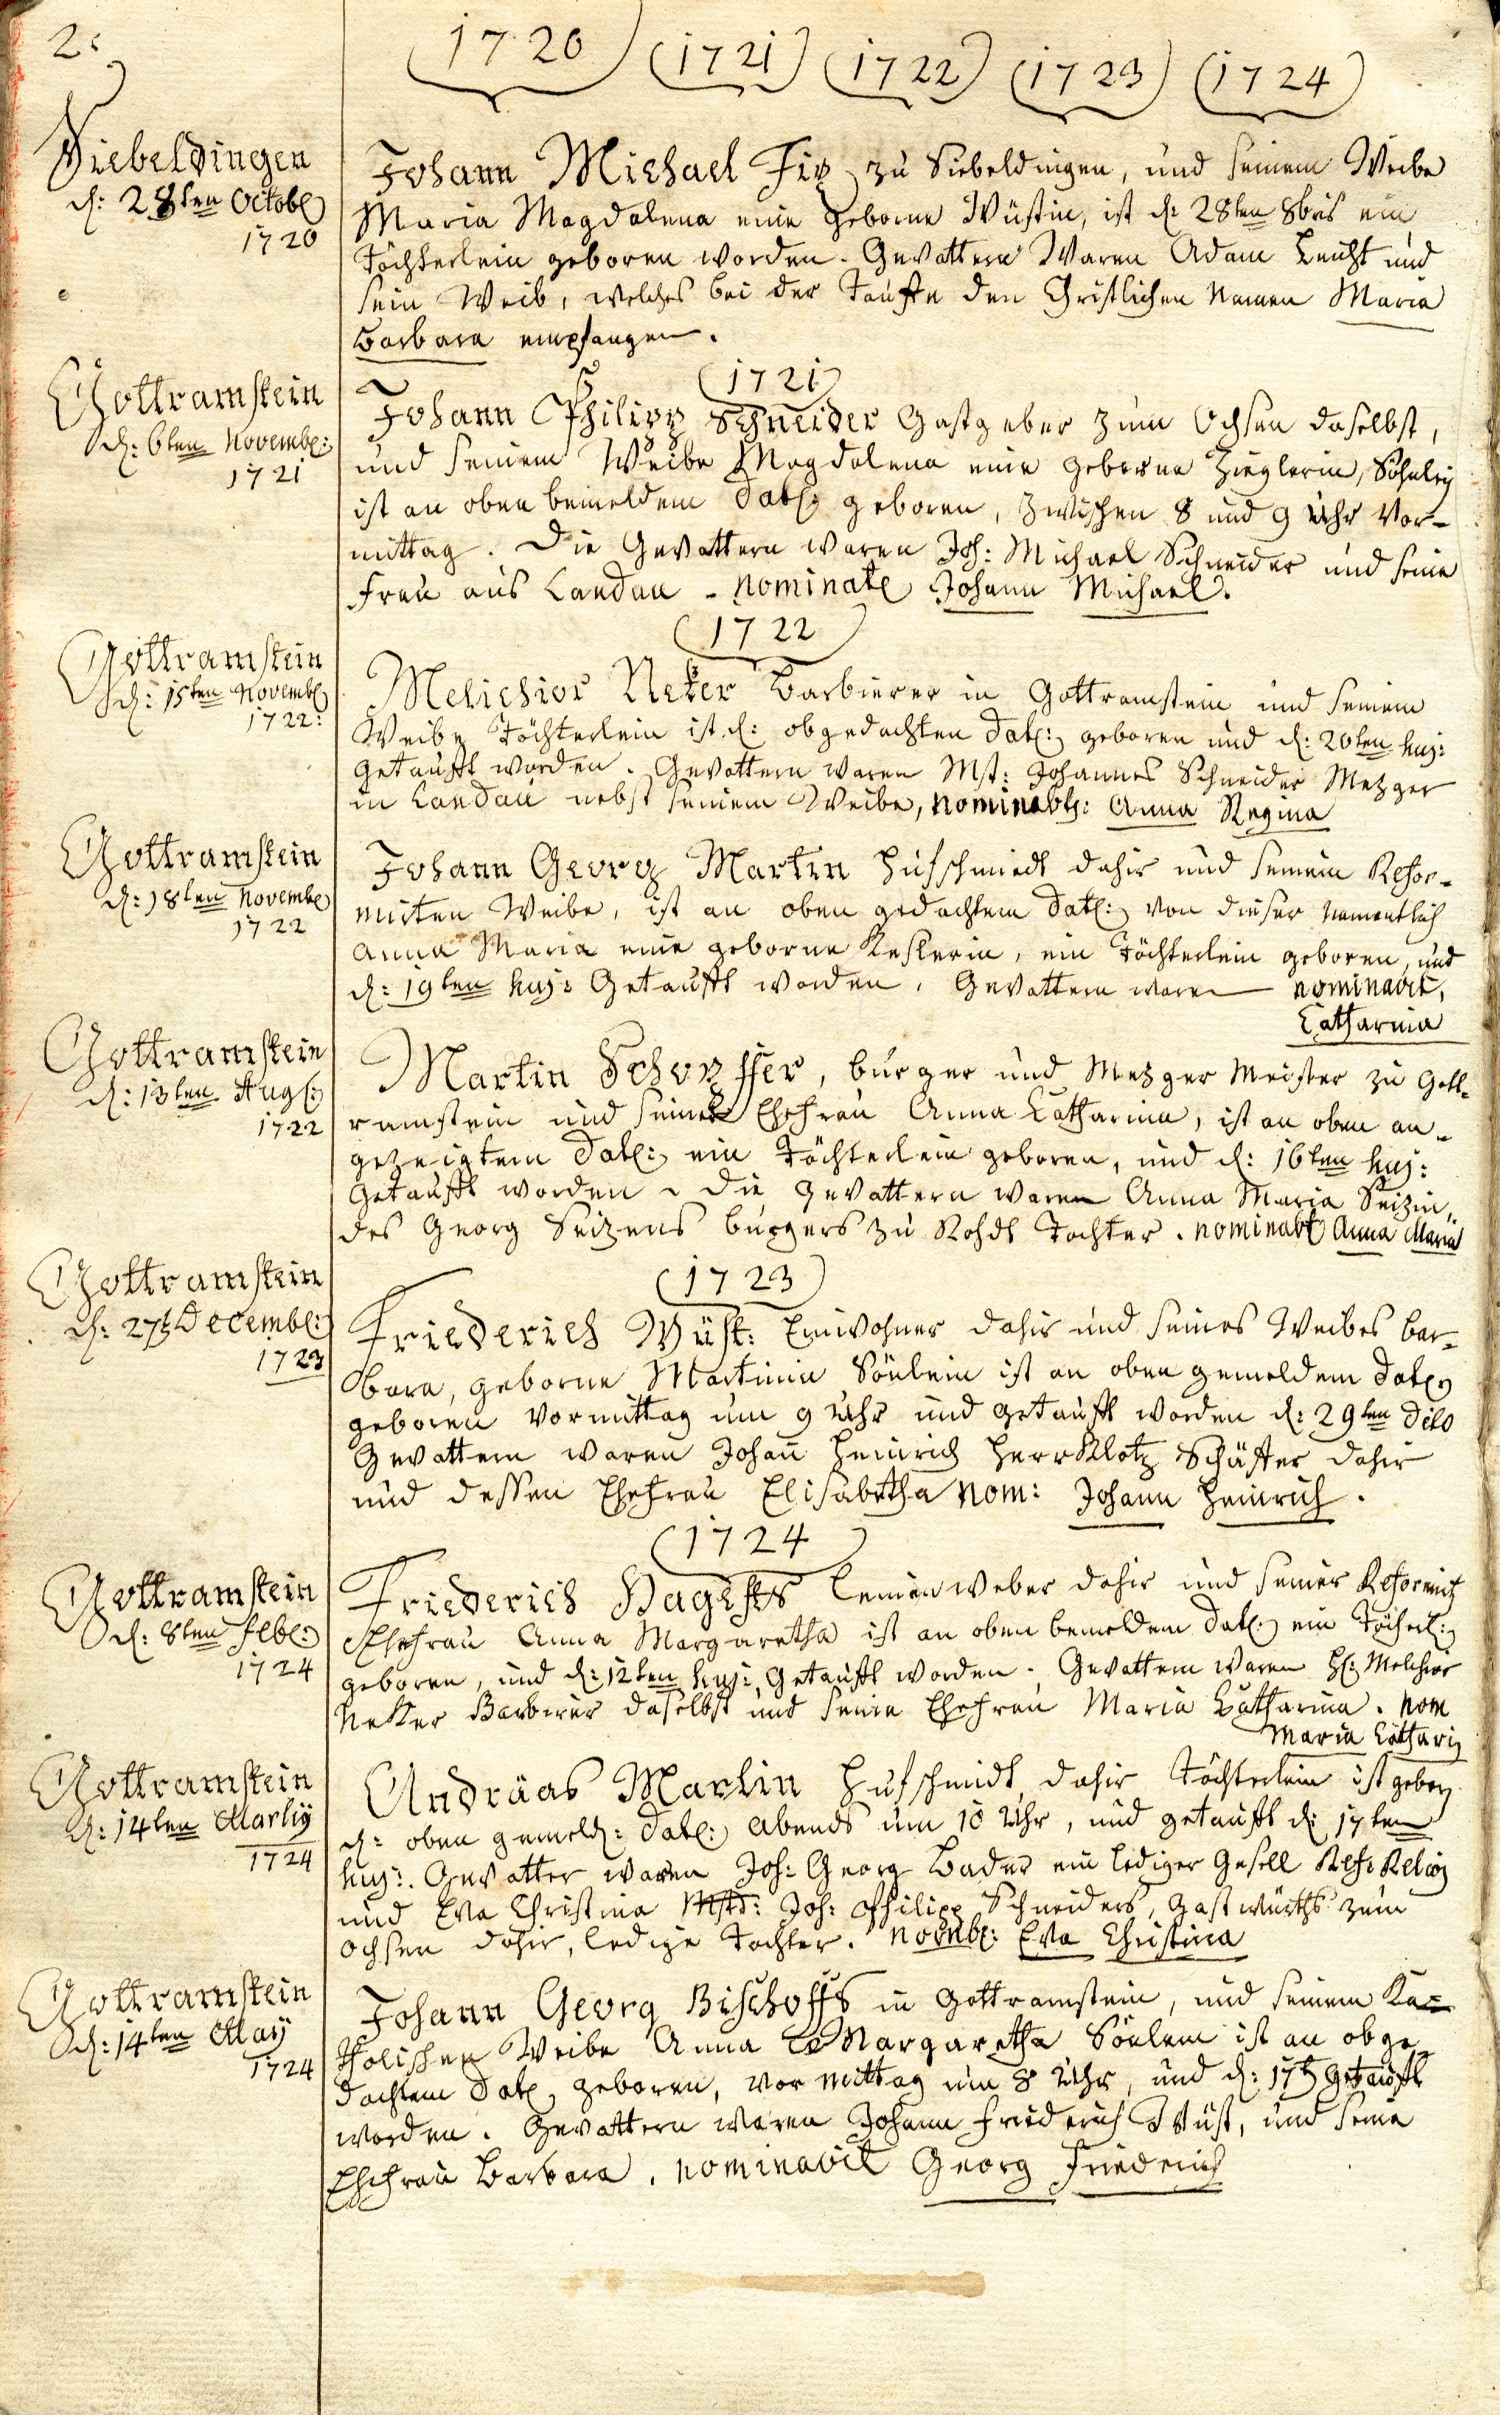 2.
1720 1721 1722 1723 1724
Siebeldingen
d: 28ten Octobr
1720
Johann Michael Fix zu Siebeldingen, und seinem Weibe
Maria Magdalena eine geborne Wüstin, ist d: 28ten 8bris ein
Töchterlein geboren worden. Gevattern Waren Adam Leicht und
sein Weib, welches bei der Tauffe den Christlichen Namen Maria
Barbara empfangen.
1721
Gottramstein
d: 6ten Novembr:
1721
Johann Philipp Schneider Gastgeber zum Ochsen daselbst,
und seinem Weibe Magdalena eine geborne Zieglerin, Söhnlein
ist an oben bemeldem Dato geboren, zwischen 8 und 9 Uhr Vor-
mittag. Die Gevattern waren Joh: Michael Schneider und seine
Frau aus Landau - nominate Johann Michael.
1722
Gottramstein
d: 15ten Novemb
1722:
Melichior Neker Barbierer in Gottramstein und seinem
Weibe Töchterlein ist d: obgedachten Dat: geboren und d: 20ten huj:
getaufft worden. Gevattern waren Mst: Johannes Schneider Metzger
in Landau nebst seinem Weibe, Anna Regina
Gottramstein
d: 18ten Novemb
1722
Johann Georg Martin Hufschmidt dahir und seinem Refor-
mirten Weibe, ist an oben gedachtem Dat: von dieser Namentlich
Anna Maria eine geborne Keslerin, ein Töchterlein geboren, und
d: 19ten huj: Getaufft worden. Gevattern waren — nominavit,
Catharina
Gottramstein
d: 13ten Aug:
1722
Martin Schopffer, burger und Metzger Meister zu Gott-
ramstein und seiner Ehefrau Anna Catharina, ist an oben an-
gezeigtem Dat: ein Töchterlein geboren, und d: 16ten huj:
Getaufft worden. Die Gevattern waren Anna Maria Seizin,
des Georg Seizens burgers zu Rohdt Tochter. Anna Maria
1723
Gottramstein
d: 27t Decembr:
1723
Friederich Wüst: Einwohner dahir und seines Weibes Bar-
bara, geborne Martinin Sönlein ist an oben gemeldem Dato
geboren Vormittag um 9 Uhr und getaufft worden d: 29ten dito
Gevattern waren Johan Heinrich Herrklotz Schäffer dahir
und dessen Ehefrau Elisabetha nom: Johann Heinrich.
1724
Gottramstein
d: 8ten Feb:
1724
Friederich Leinenweber dahir und seiner Reformirt
Ehefrau Anna Margaretha ist an oben bemeldem Dat: ein Töchterl:
geboren, und d: 12ten huj: Getaufft worden. Gevattern waren H: Melchior
Nekker Barbirer daselbst und seine Ehefrau Maria Catharina. nom
Maria Catharin
Gottramstein
d: 14ten Martij
1724
Andräas Martin Hufschmidt dahir Töchterlein ist gebor
d: oben gemeld: Dat: Abends um 10 Uhr, und getaufft d: 17ten
huj:. Gevatter waren Joh: Georg Bader ein lediger Gesell Ref: Relion
und Eva Christina Mstr: Joh: Philipp Schneiders, Gastwürths zum
Ochsen dahir, ledige Tochter. Eva Christina
Gottramstein
d: 14ten May
1724
Johann Georg Bischoffs in Gottramstein, und seinem Ka-
tholischen Weibe Anna Margaretha Sönlein ist an obge-
dachtem Dato geboren, vor mittag um 8 Uhr, und d: 17t getaufft
worden. Gevattern waren Johann Friederich Wüst, und seine
Ehefrau Barbara. nominavit Georg Friederich